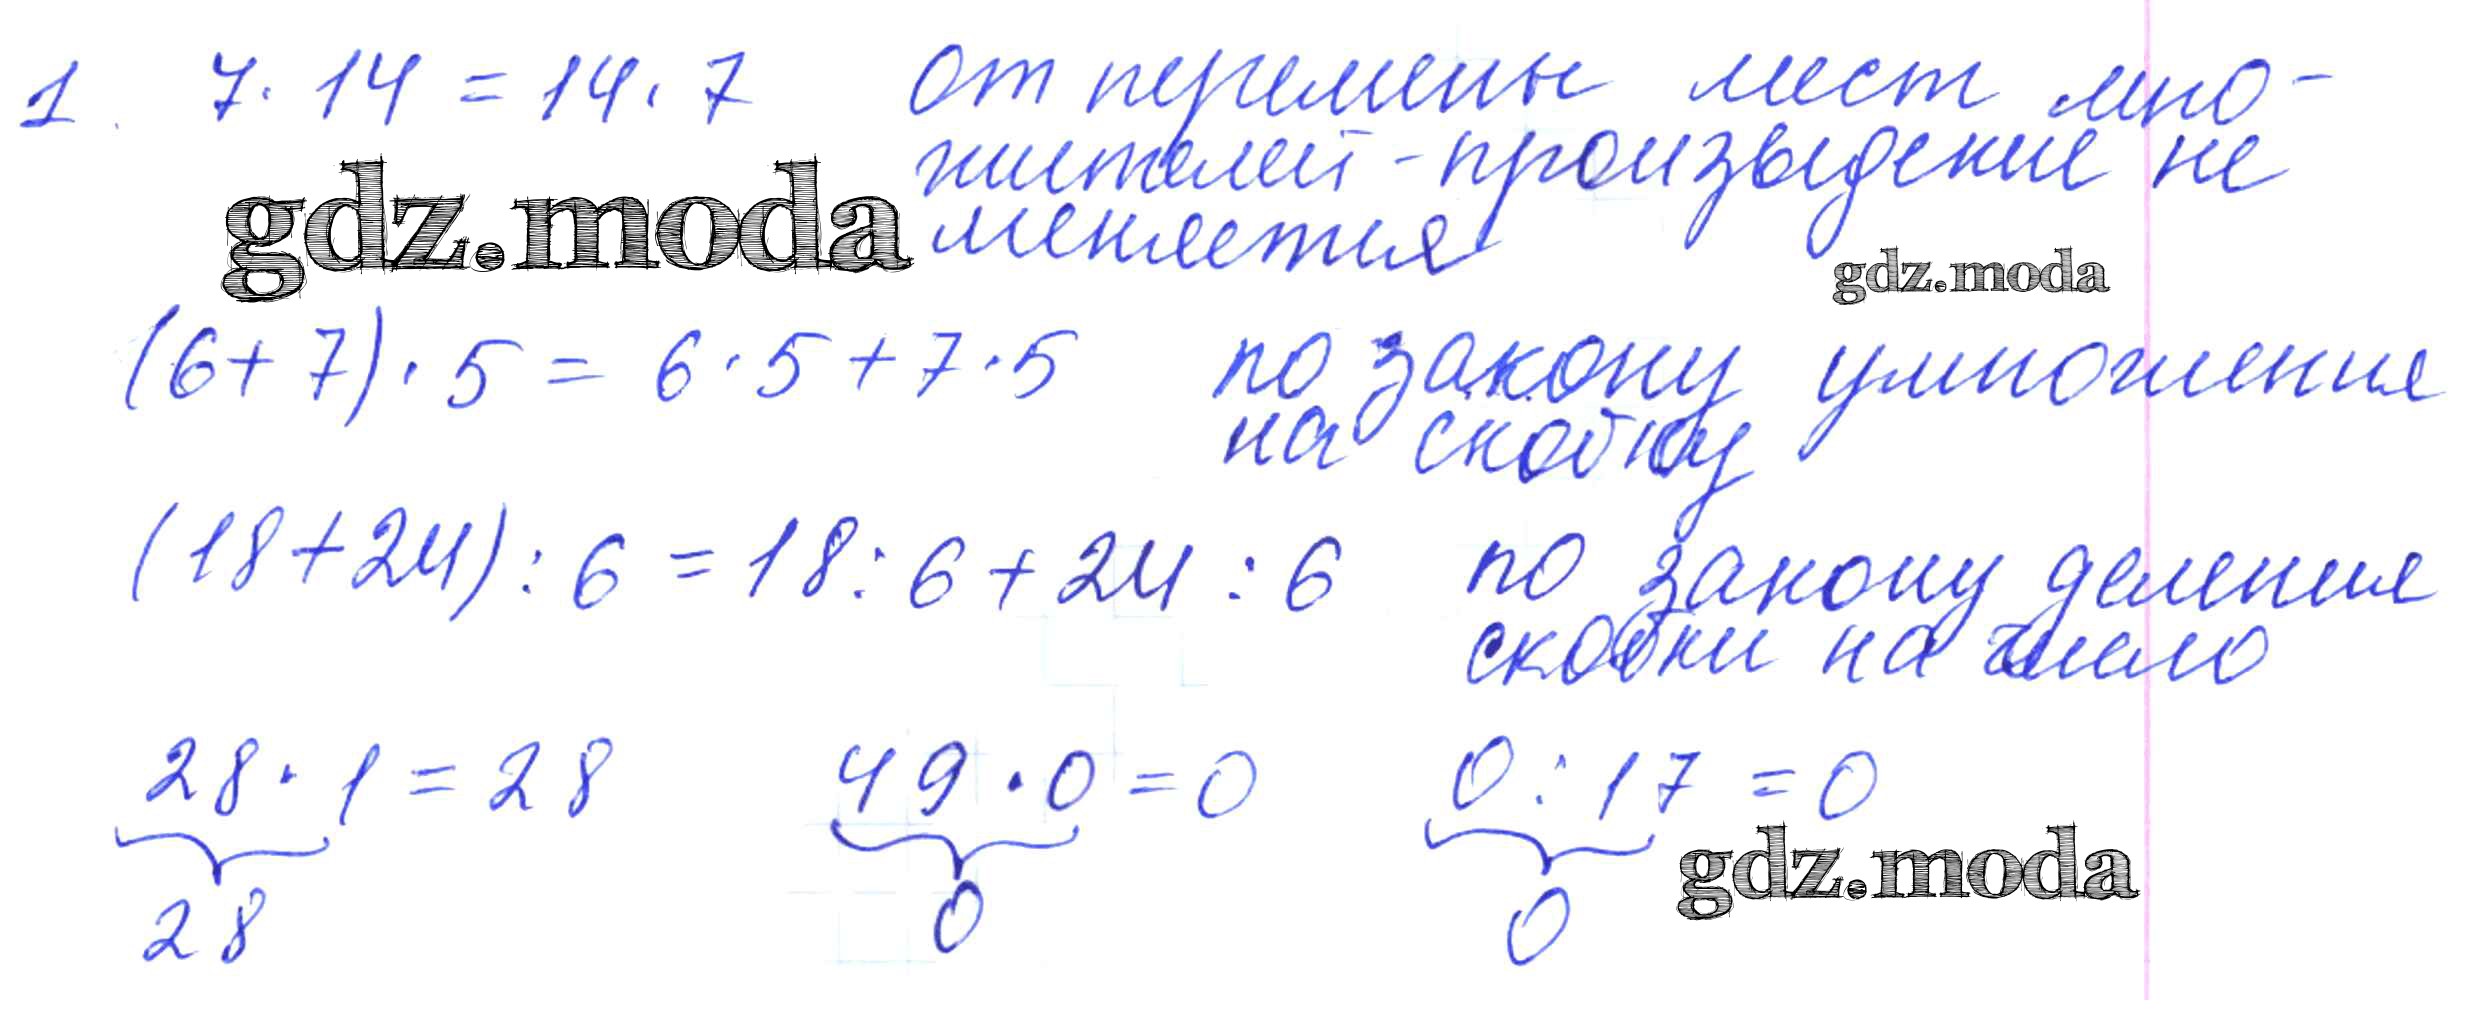 1. 7·14=14·7 от перемены мест мно-
жителей-произведение не
gdz.moda меняется
gdz.moda
(6+7)·5=6·5+7·5 по закону умножения
на скобку
(18+24):6=18:6+24:6 по закону деления
скобки на число
28·1=28 49·0=0 0:17=0
gdz.moda
28 0 0